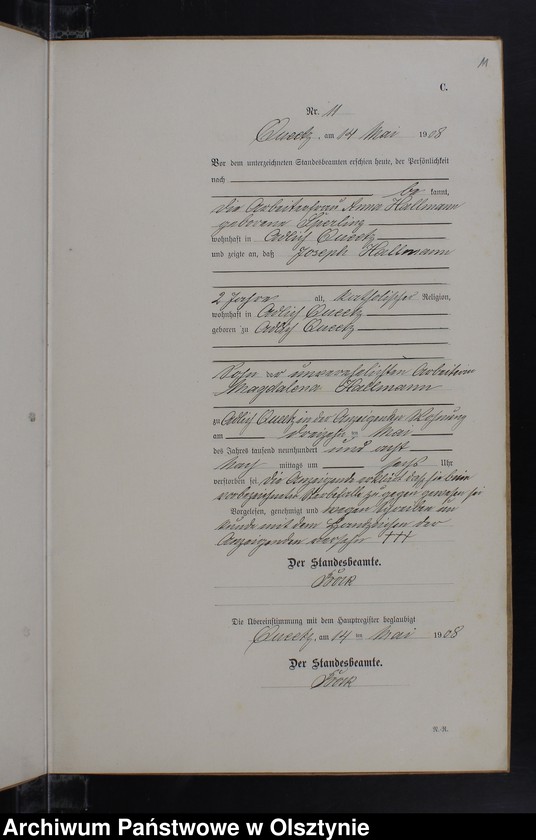 11
C.
Nr. 11
Queetz, am 14 Mai 1908
Vor dem unterzeichneten Standesbeamten erschien heute, der Persönlichkeit
nach
be kannt,
die Arbeiterfrau Anna Hallmann
geborene Sperling
wohnhaft in Adlich Queetz
und zeigte an, daß Joseph Hallmann
2 Jahre alt, katholischer Religion,
wohnhaft in Adlich Queetz
geboren zu Adlich Queetz
Sohn der unverehelichten Arbeiterin
Magdalena Hallmann
zu Adlich Queetz in der Anzeigenden Wohnung
am dreizehn ten Mai
des Jahres tausend neunhundert und acht
Nach mittags um sechs Uhr
verstorben sei. Die Anzeigende erklärt daß sie beim
vorbezeichneten Sterbefalle zu gegen gewesen sei
Vorgelesen, genehmigt und wegen Schreiben un
kunde mit dem Handzeichen der
Anzeigenden versehn +++
Der Standesbeamte.
Die Übereinstimmung mit dem Hauptregister beglaubigt
Queetz, am 14 ten Mai 1908
Der Standesbeamte.
Archiwum Państwowe w Olsztynie